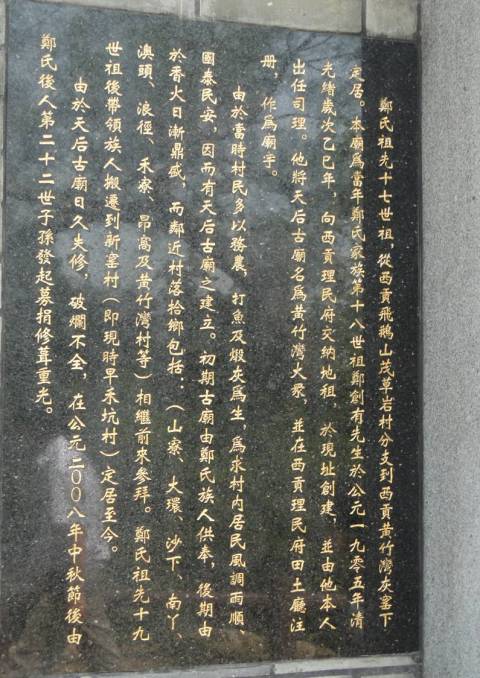 鄭氏祖先十七世祖，從西貢飛鵝山茂草岩村分支到西貢黃竹灣灰窰下
定居。本廟為當年鄭氏家族第十八世祖鄭創有先生於公元一九零五年清
光緒歲次乙巳年，向西貢理民府交納地租，於現址創建，並由他本人
出任司理。他將天后古廟名為黃竹灣大眾，並在西貢理民府田土廳注
册，作為廟宇。
由於當時村民多以務農、打魚及煅灰為生，為求村內居民風調雨順、
國泰民安，因而有天后古廟之建立。初期古廟由鄭氏族人供奉，後期由
於香火日漸鼎盛，而鄰近村落拾鄉包括：（山寮、大環、沙下、南丫、
澳頭、浪徑、禾寮、昂窩及黃竹灣村等）相繼前來參拜。鄭氏祖先十九
世祖後帶領族人搬遷到新窰村（即現時早禾坑村）定居至今。
由於天后古廟日久失修，破爛不全，在公元二00八年中秋節後由
鄭氏後人第二十二世子孫發起募捐修葺重光。